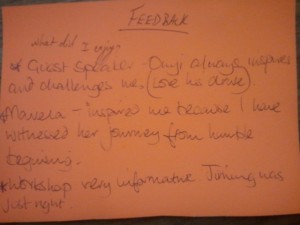 FEEDBACK
What did I enjoy
* Guest Speaker - always inspires
and challenges me. (Love his drive)
* - Inspired me because I have
witnessed her journey from humble
beginning.
* Workshop very informative Timing was
just right.